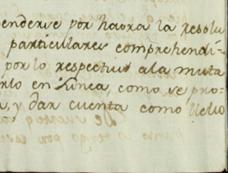 enderse por haora la resolu
particulares comprehendi-
por lo respectivo a la muta
rlo en Linea, como se pro-
a, y dar cuenta como llebo